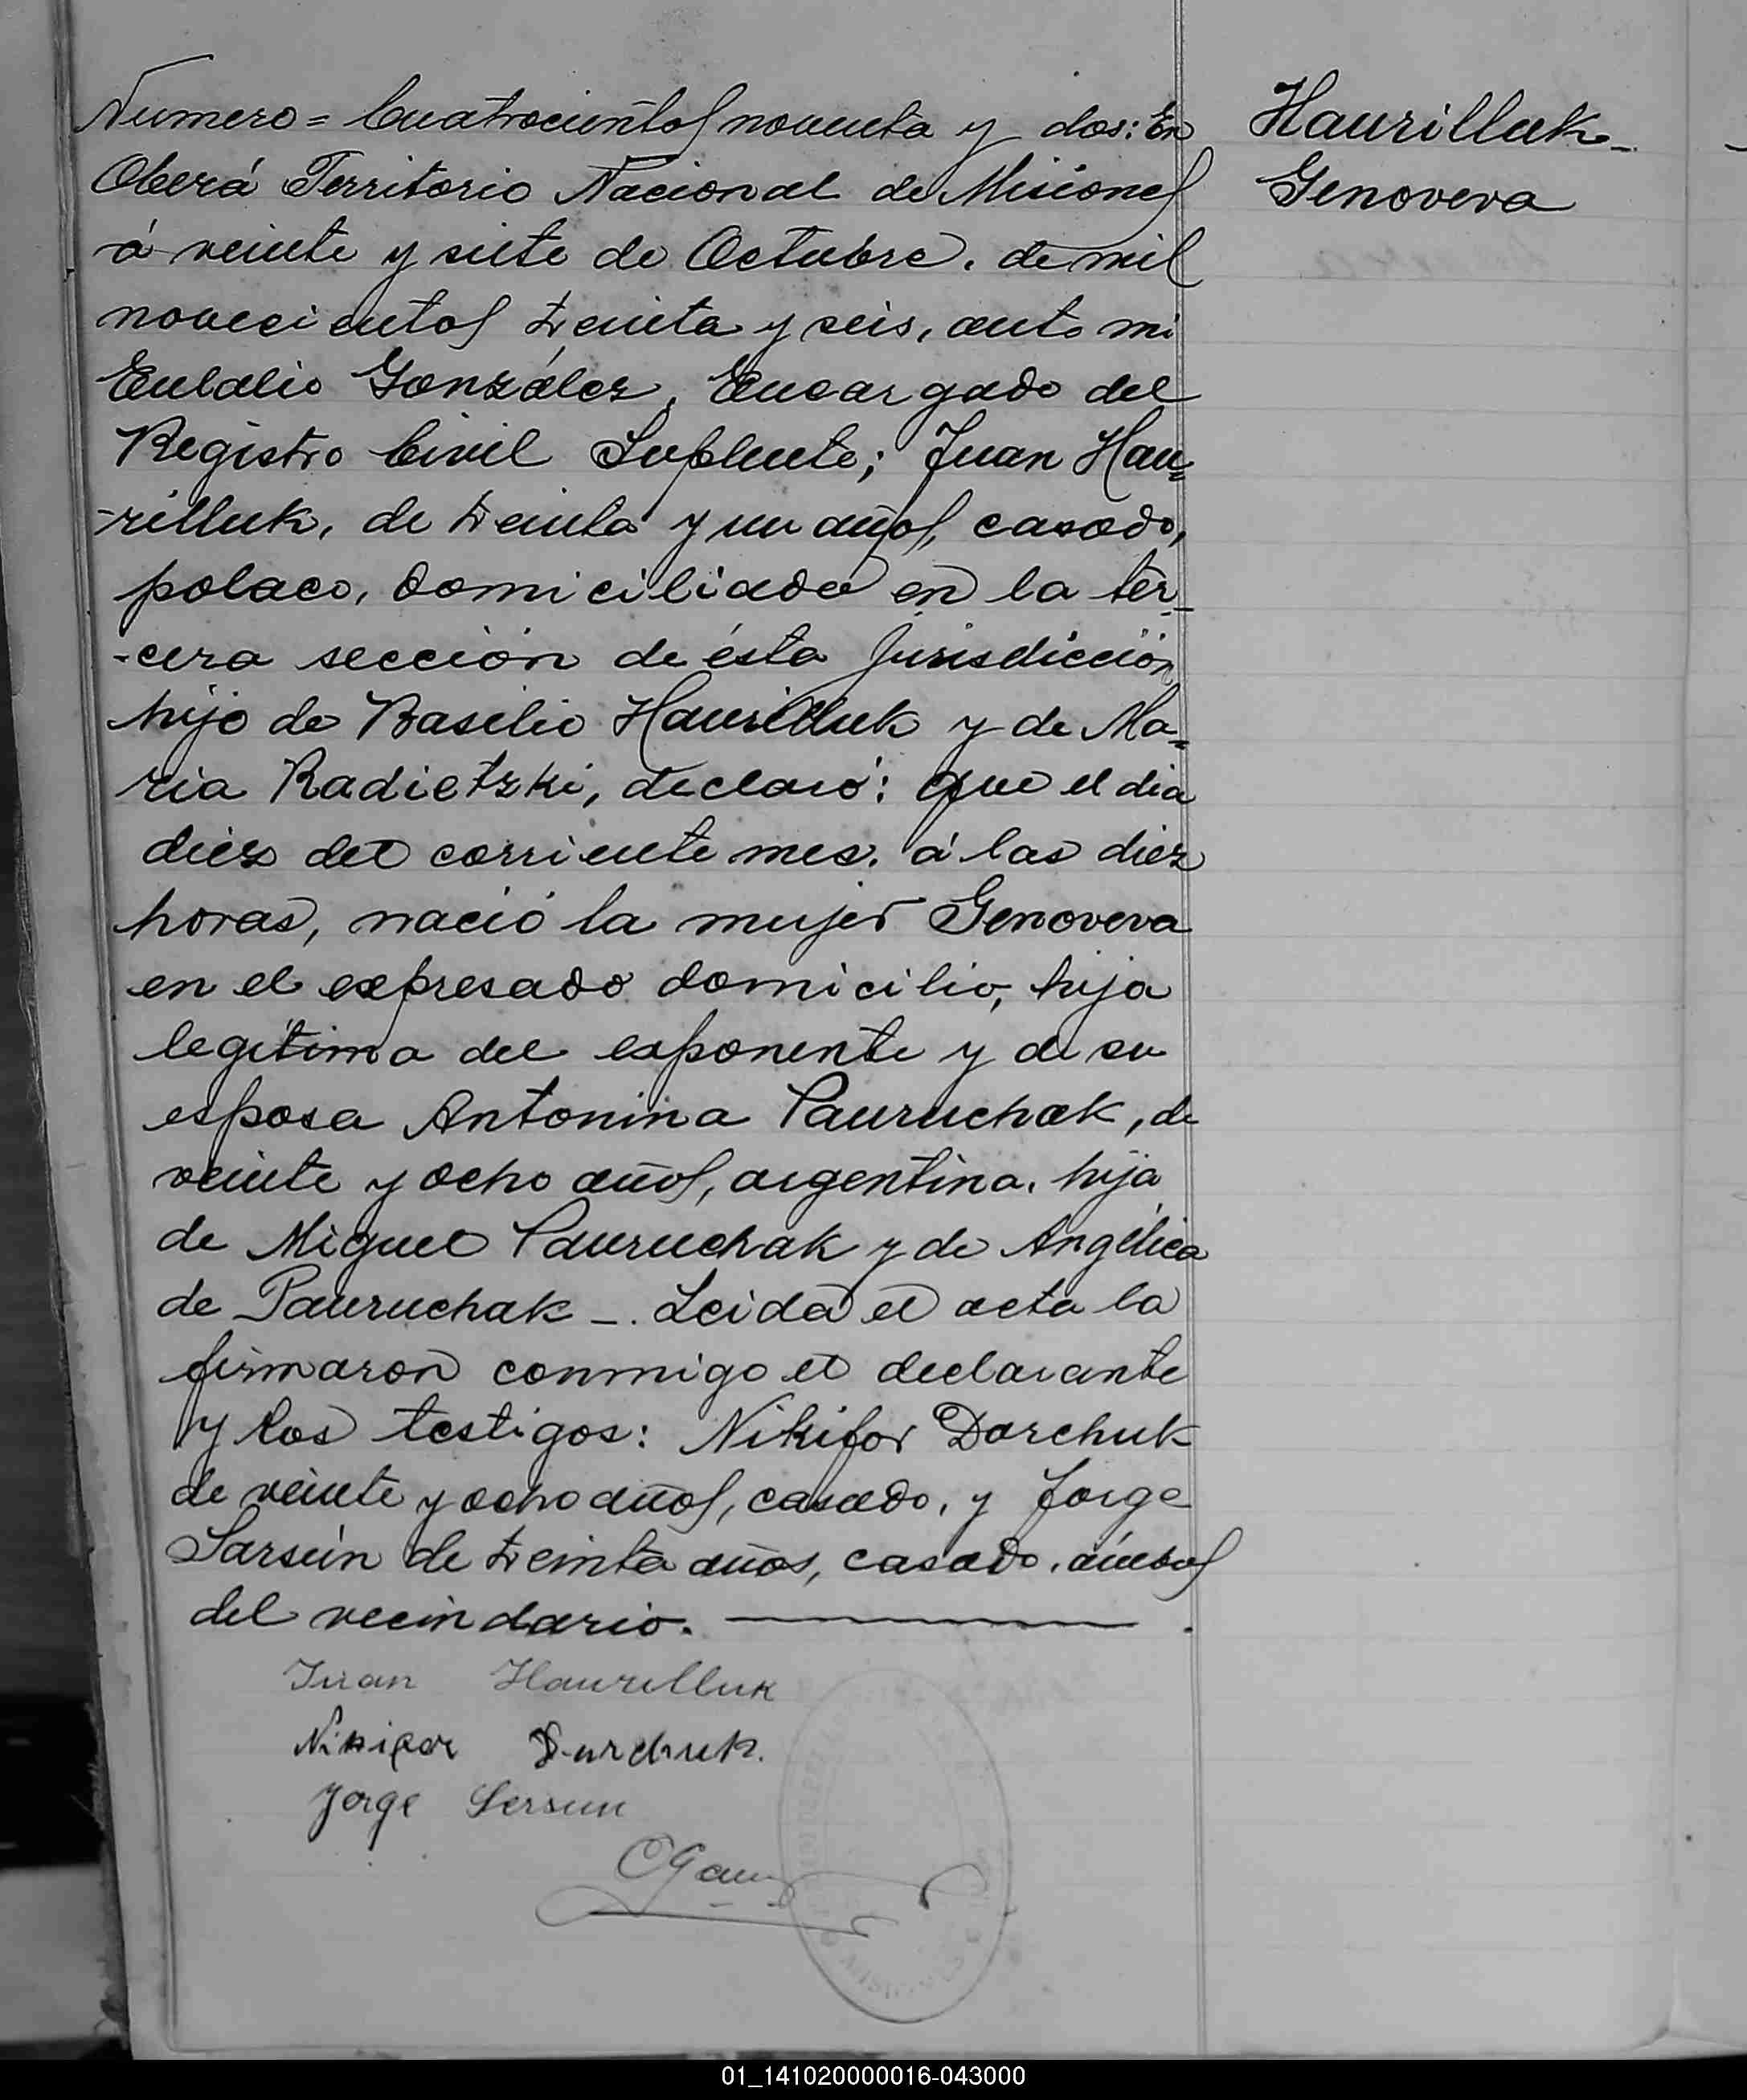 Numero = Cuatrocientos noventa y dos: En
Oberá Territorio Nacional de Misiones
á veinte y siete de Octubre, de mil
novecientos treinta y seis, ante mi
Eulalio González, Encargado del
Registro Civil Suplente; Juan Hau=
-rilluk, de treinta y un años, casado,
polaco, domiciliado en la ter-
-cera sección de ésta Jurisdicción
hijo de Basilio Haurilluk y de Ma=
ria Radietzki, declaró: que el dia
diez del corriente mes, á las diez
horas, nació la mujer Genoveva
en el expresado domicilio, hija
legítima del exponente y de su
esposa Antonina Pauruchak, de
veinte y ocho años, argentina, hija
de Miguel Pauruchak y de Angélica
de Pauruchak -. Leida el acta la
firmaron conmigo el declarante
y los testigos: Nikifor Dorchuk
de veinte y ocho años, casado, y Jorge
Sarsún de treinta años, casado, ámbos
del vecindario.
Haurilluk-
Genoveva
Juan Haurilluk
Jorge Sersun
01_141020000016-043000